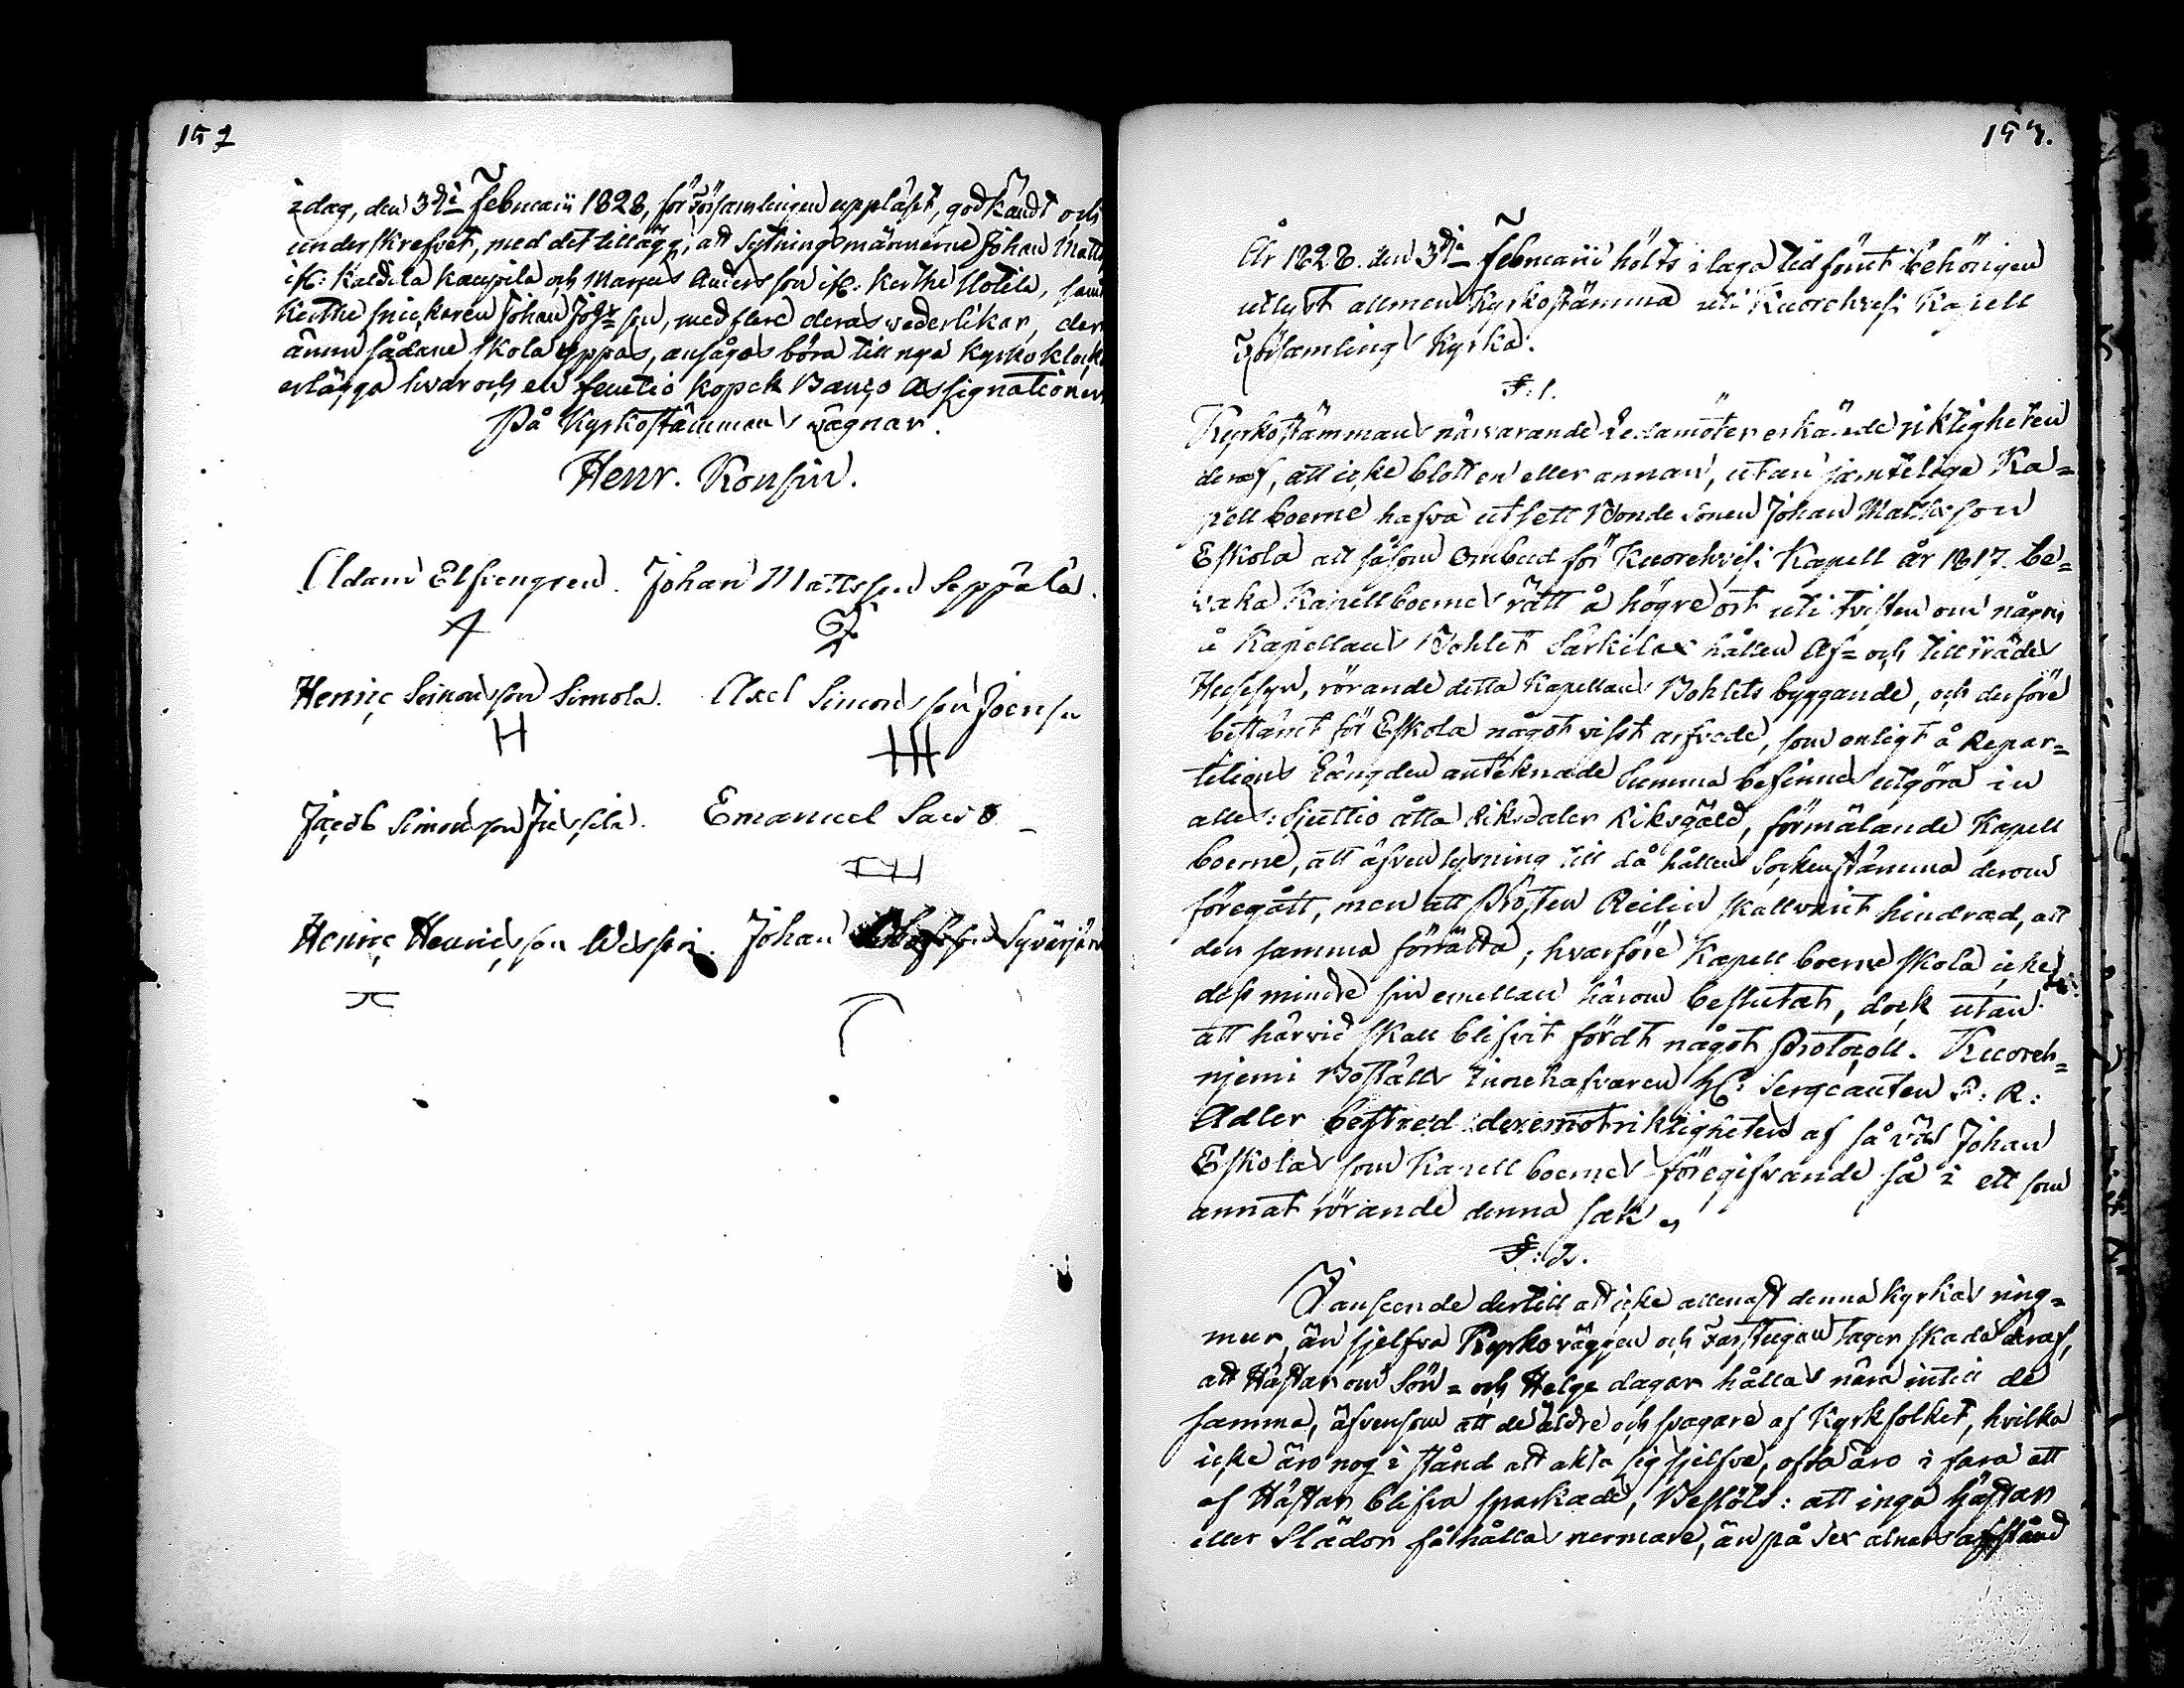 152
idag, den 3die Februarii 1828, för Församlingen uppläst, godkändt och
underskrefvet, med det tillägg, att Sytningsmännerne Johan Matts
Kaldila Kauppila och Marcus Andersson Kerthe Uotila, samt
Kerthe snickaren Johan Johsson, med flere deras vederlikar, der
ännu sådane skola yppas, ansågos böra till nya Kyrkoklock
erlägga hvar och en femtio kopek Banco Assignationer
På Kyrkostämmans vägnar.
Henr. Konsin.
Adam Elfvengren. Johan Mattsson Seppälä.
Henric Simonsson Simola. Axel Simonsson Joensu
Jacob Simonsson Jussila. Emanuel Savo
Henric Henricsson Wessari. Johan Syvärjärv
153.
År 1828. den 3die Februarii hölts i laga tid förut behörigen
utlyst allmen Kyrkostämma uti Kuorehvesi Kapell
Församlings Kyrka.
§: 1.
Kyrkostämmans närvarande Ledamöter erkände riktigheten
deraf, att icke blott en eller annan, utan samtelige Ka=
pellboerne hafva utsett Bonde Sonen Johan Mattsson
Eskola att såsom Ombud för Kuorehvesi Kapell år 1817. be=
vaka Kapellboernes rätt å högre ort uti tvisten om någon
å Kapellans Bohlet Särkilax hållen Af= och tillträdes
Husesyn, rörande detta Kapellans Bohlets byggande, och derföre
bestämt för Eskola något visst arfvode, som enligt å Repar=
titions Längden anteknade Summa befinnes utgöra in
alles: Sjuttio åtta Riksdaler Riksgäld, förmälande Kapell
boerne, att äfven lysning till då hållen Sockenstämma derom
föregått, men att Prosten Reilin skall varit hindrad, att
den samma förrätta; hvarföre Kapell boerne skola icke
dess mindre sin emellan härom beslutat, dock utan
att härvid skall blifvit fördt något Protocoll. Kuoreh=
njemi Boställs Innehafvaren H: Sergeanten P: R:
Adler bestred deremot riktigheten af så väl Johan
Eskolas som Kapell boernes föregifvande så i ett som
annat rörande denna sak.
§: 2.
I anseende dertill att icke allenast denna Kyrkas ring=
mur, än sjelfva Kyrkoväggen och Farstugan tager skada deraf,
att Hästar om Sön= och Helge dagar hållas nära intill de
samma, äfvensom att de äldre och svagare af Kyrkfolket, hvilka
icke äro nog i stånd att akta sig sjelfve, ofta äro i fara att
af Hästar blifva sparkade, Beslöts: att inga hästar
eller Slädor få hållas nermare, än på Sex alnars afstånd